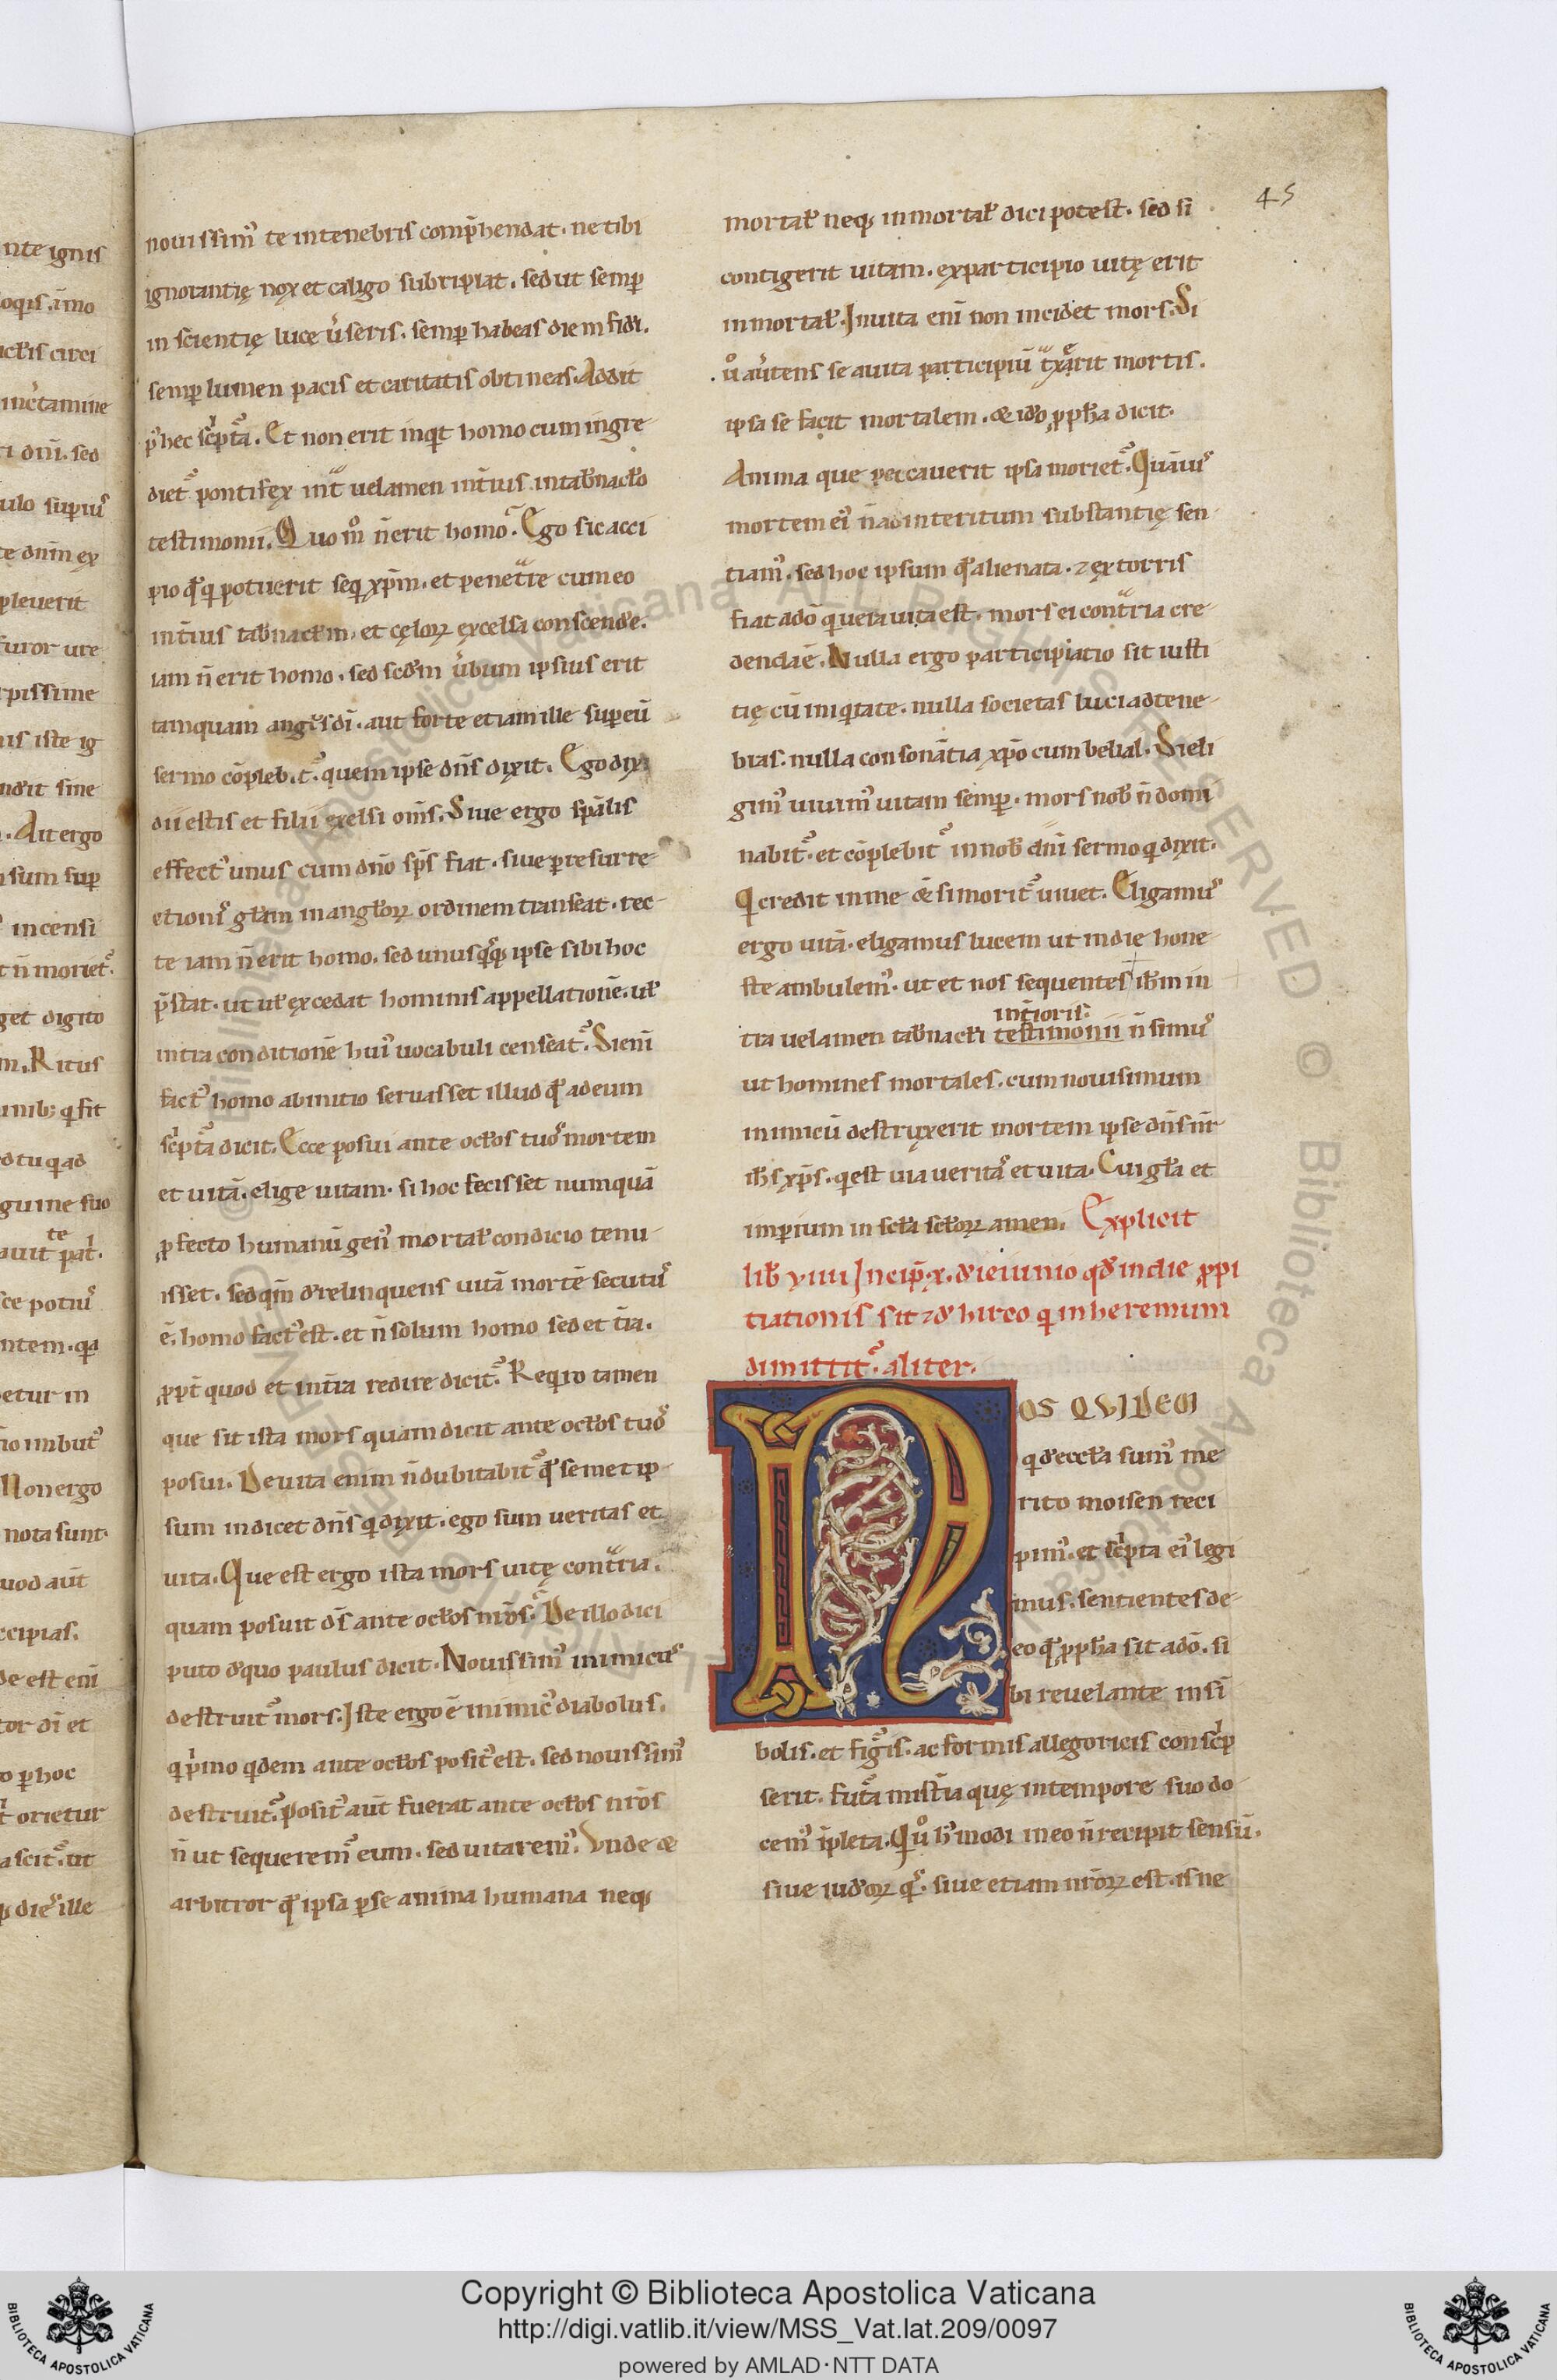 nte ignis
oqis. īmo
r̄ dn̄i. sed
ulo supiuſ
pleuerit
furor ure
pissime
is iste ig
ndit sine
. Ait ergo
sum sup
incensi
t n̄ moriet᷒.
get digito
m. Ritus
guine suo
te
sce potiuſ
etur in
Non ergo
nota sunt.
uod aūt
ccipias.
de est eni
tor dī et
o p̱ hoc
orietur
ascit᷒. ut
nouissim᷒ te in tenebris comp̄hendat. ne tibi
ignorantię nox et caligo subripiat. sed ut semp̱
in scientię luce ūseris. semp̱ habeas diem fidi.
semp̱ lumen pacis et caritatis obtineas. Addit
p᷒ hec sc̄pta. Et non erit inqt homo cum ingre
diet᷒ pontifex int᷒ uelamen int̄ius in tab̄nac̄lo
testimonii. Quom̊ n̄ erit homo. Ego sic acci
pio qd̄ q̇ potuerit seq̇ xp̄m. et penet᷒re cum eo
int̄ius tab̄nac̄lm. et cęloꝝ excelsa conscende.
iam n̄ erit homo. sed scd̄m ūbum ipsius erit
tamquam angl̄s dī. aut forte etiam ille sup eū
sermo cōplebit᷒. quem ipse dn̄s dixit. Ego dixi
dii estis et filii exelsi om̄s. Siue ergo sp̄alis
effect᷒ unus cum dn̄o sp̄s fiat. siue p̱ resurre
ctioniſ gl̄am in angl̄oꝝ ordinem transeat. rec
te iam n̄ erit homo. sed unusq̇sq; ipse sibi hoc
p̄stat. ut ul̄ excedat hominis appellationē. ul̄
intra conditionē hui᷒ uocabuli censeat᷒. Si eni
fact᷒ homo ab initio seruasset illud qd̄ ad eum
sc̄pta dicit. Ecce posui ante oc̄los tuoſ mortem
et uitā. elige uitam. si hoc fecisset numquā
ꝓfecto humanū gen᷒ mortal̄ condicio tenu
isset. sed qm̄ d̄relinquens uitā mortē secutuſ
ē. homo fact᷒ est. et n̄ solum homo sed et t̄ra.
ꝓpt̄ quod et in t̄ra redire dicit᷒. Reqro tamen
que sit ista mors quam dicit ante oc̄los tuoſ
posui. De uita enim n̄ dubitabit᷒ qd̄ semet ip
sum indicet dn̄s q̇ dixit. ego sum ueritas et
uita. Que est ergo ista mors uitę cont᷒ria.
quam posuit dſ̄ ante oc̄los nr̄os. De illo dici
puto d̄ quo paulus dicit. Nouissim᷒ inimicuſ
destruit᷒ mors. Iste ergo ē inimic᷒ diabolus.
q̇ ṗmo q̇dem ante oc̄los posit᷒ est. sed nouissim᷒
destruit᷒. Posit᷒ aūt fuerat ante oc̄los nr̄os
n̄ ut sequerem᷒ eum. sed uitarem᷒. Unde &
arbitror qd̄ ipsa p̱ se anima humana neq;
45
mortal̄ neq; inmortal̄ dici potest. sed si
contigerit uitam. ex participio uitę erit
inmortal̄. In uita eni non incidet mors. Si
ů aūtens se a uita participiū t᷒xerit mortis.
ipsa se facit mortalem. & ido ꝓph̄a dicit.
Anima que peccauerit ipsa moriet᷒. Quāuiſ
mortem ei᷒ n̄ ad interitum substantię sen
tiam᷒. sed hoc ipsum qd̄ alienata. ⁊ extorris
fiat a dō q̇ uera uita est. mors ei cont᷒ria cre
denda ē. Nulla ergo participiatio sit iusti
tię cū iniq̇tate. nulla societas luci ad tene
bras. nulla consonātia xp̄o cum belial. Si eli
gim᷒ uiuim᷒ uitam semp̱. mors nob̄ n̄ domi
nabit᷒. et cōplebit᷒ in nob̄ dn̄i sermo q̇ dixit.
Q̇ credit in me & si morit᷒ uiuet. Eligamuſ
ergo uitā. eligamus lucem ut in die hone
ste ambulem᷒. ut et nos sequentes ih̄m in
int̄ioris
tra uelamen tab̄nac̄li testimonii n̄ simuſ
ut homines mortales. cum nouisimum
inimicū destruxerit mortem ipse dn̄s nr̄
ih̄s xp̄s. q̇ est uia ueritaſ et uita. Cui gl̄a et
imp̱ium in sc̄la sc̄loꝝ amen. Explicit
lib̄ viiii Incip̄. x. d̄ ieiunio qd̄ in die ꝓpi
tiationis fit ⁊ d̄ hirco q̇ in heremum
dimittit᷒. aliter.
NOS QVIDEM
q̇ d̄ ecc̄la sum᷒ me
rito moisen reci
pim᷒. et sc̄pta ei᷒ legi
mus. sentientes de
eo qd̄ ꝓph̄a sit a dō. si
bi reuelante in si
bolis. et fig᷒is. ac formis allegoricis consc̄p
serit. fut᷒a mist̄ia quę in tempore suo do
cem᷒ īpleta. Q̇ ů h᷒ modi in eo n̄ recipit sensū.
siue iud̄oꝝ qs. siue etiam nr̄oꝝ est. is ne
© Biblioteca Apostolica Vaticana ALL RIGHTS RESERVED © Biblioteca Apostolica Vaticana ALL RIGHTS RESERVED
Copyright © Biblioteca Apostolica Vaticana
http://digi.vatlib.it/view/MSS_Vat.lat.209/0097
powered by AMLAD・NTT DATA
BIBLIOTECA APOSTOLICA VATICANA
BIBLIOTECA APOSTOLICA VATICANA